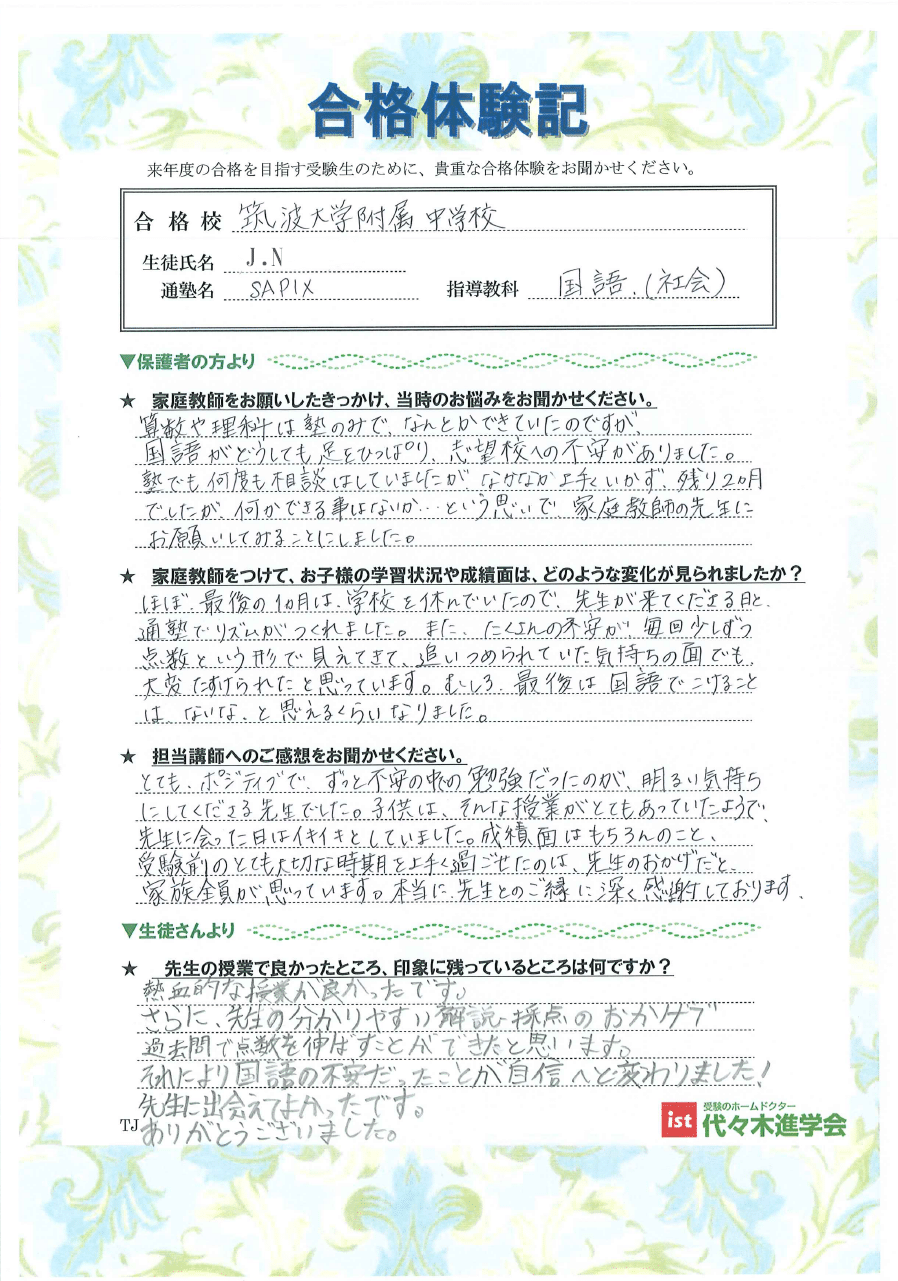 合格体験記
来年度の合格を目指す受験生のために、貴重な合格体験をお聞かせください。
合格校 筑波大学附属中学校
生徒氏名 J.N
通塾名 SAPIX 指導教科 国語.(社会)
▼保護者の方より
★ 家庭教師をお願いしたきっかけ、当時のお悩みをお聞かせください。
算数や理科は塾のみで、なんとかできていたのですが、
国語がどうしても足をひっぱり、志望校への不安がありました。
塾でも何度も相談はしていましたが、なかなか上手くいかず、残り2ヵ月
でしたが、何ができる事はないか…という思いで、家庭教師の先生に
お願いしてみることにしました。
★ 家庭教師をつけて、お子様の学習状況や成績面は、どのような変化が見られましたか？
ほぼ、最後の1ヵ月は、学校を休んでいたので、先生が来てくださる日と、
通塾でリズムがつくれました。また、たくさんの不安が、毎回少しずつ
点数という形で見えてきて、追いつめられていた気持ちの面でも、
大変たすけられたと思っています。むしろ、最後は国語でこけること
は、ないな、と思えるくらいなりました。
★ 担当講師へのご感想をお聞かせください。
とても、ポジティブで、ずっと不安の中での勉強だったのが、明るい気持ち
にしてくださる先生でした。子供は、そんな授業がとてもあっていたようで、
先生に会った日はイキイキとしていました。成績面はもちろんのこと、
受験前のとても大切な時期を上手く過ごせたのは、先生のおかげだと、
家族全員が思っています。本当に、先生とのご縁に深く感謝しております。
▼生徒さんより
★ 先生の授業で良かったところ、印象に残っているところは何ですか？
熱血的な授業が良かったです。
さらに、先生の分かりやすい解説・採点のおかげで
過去問で点数を伸ばすことができたと思います。
それにより国語の不安だったことが自信へと変わりました！
先生に出会えてよかったです。
TJ ありがとうございました。
ist 受験のホームドクター
代々木進学会